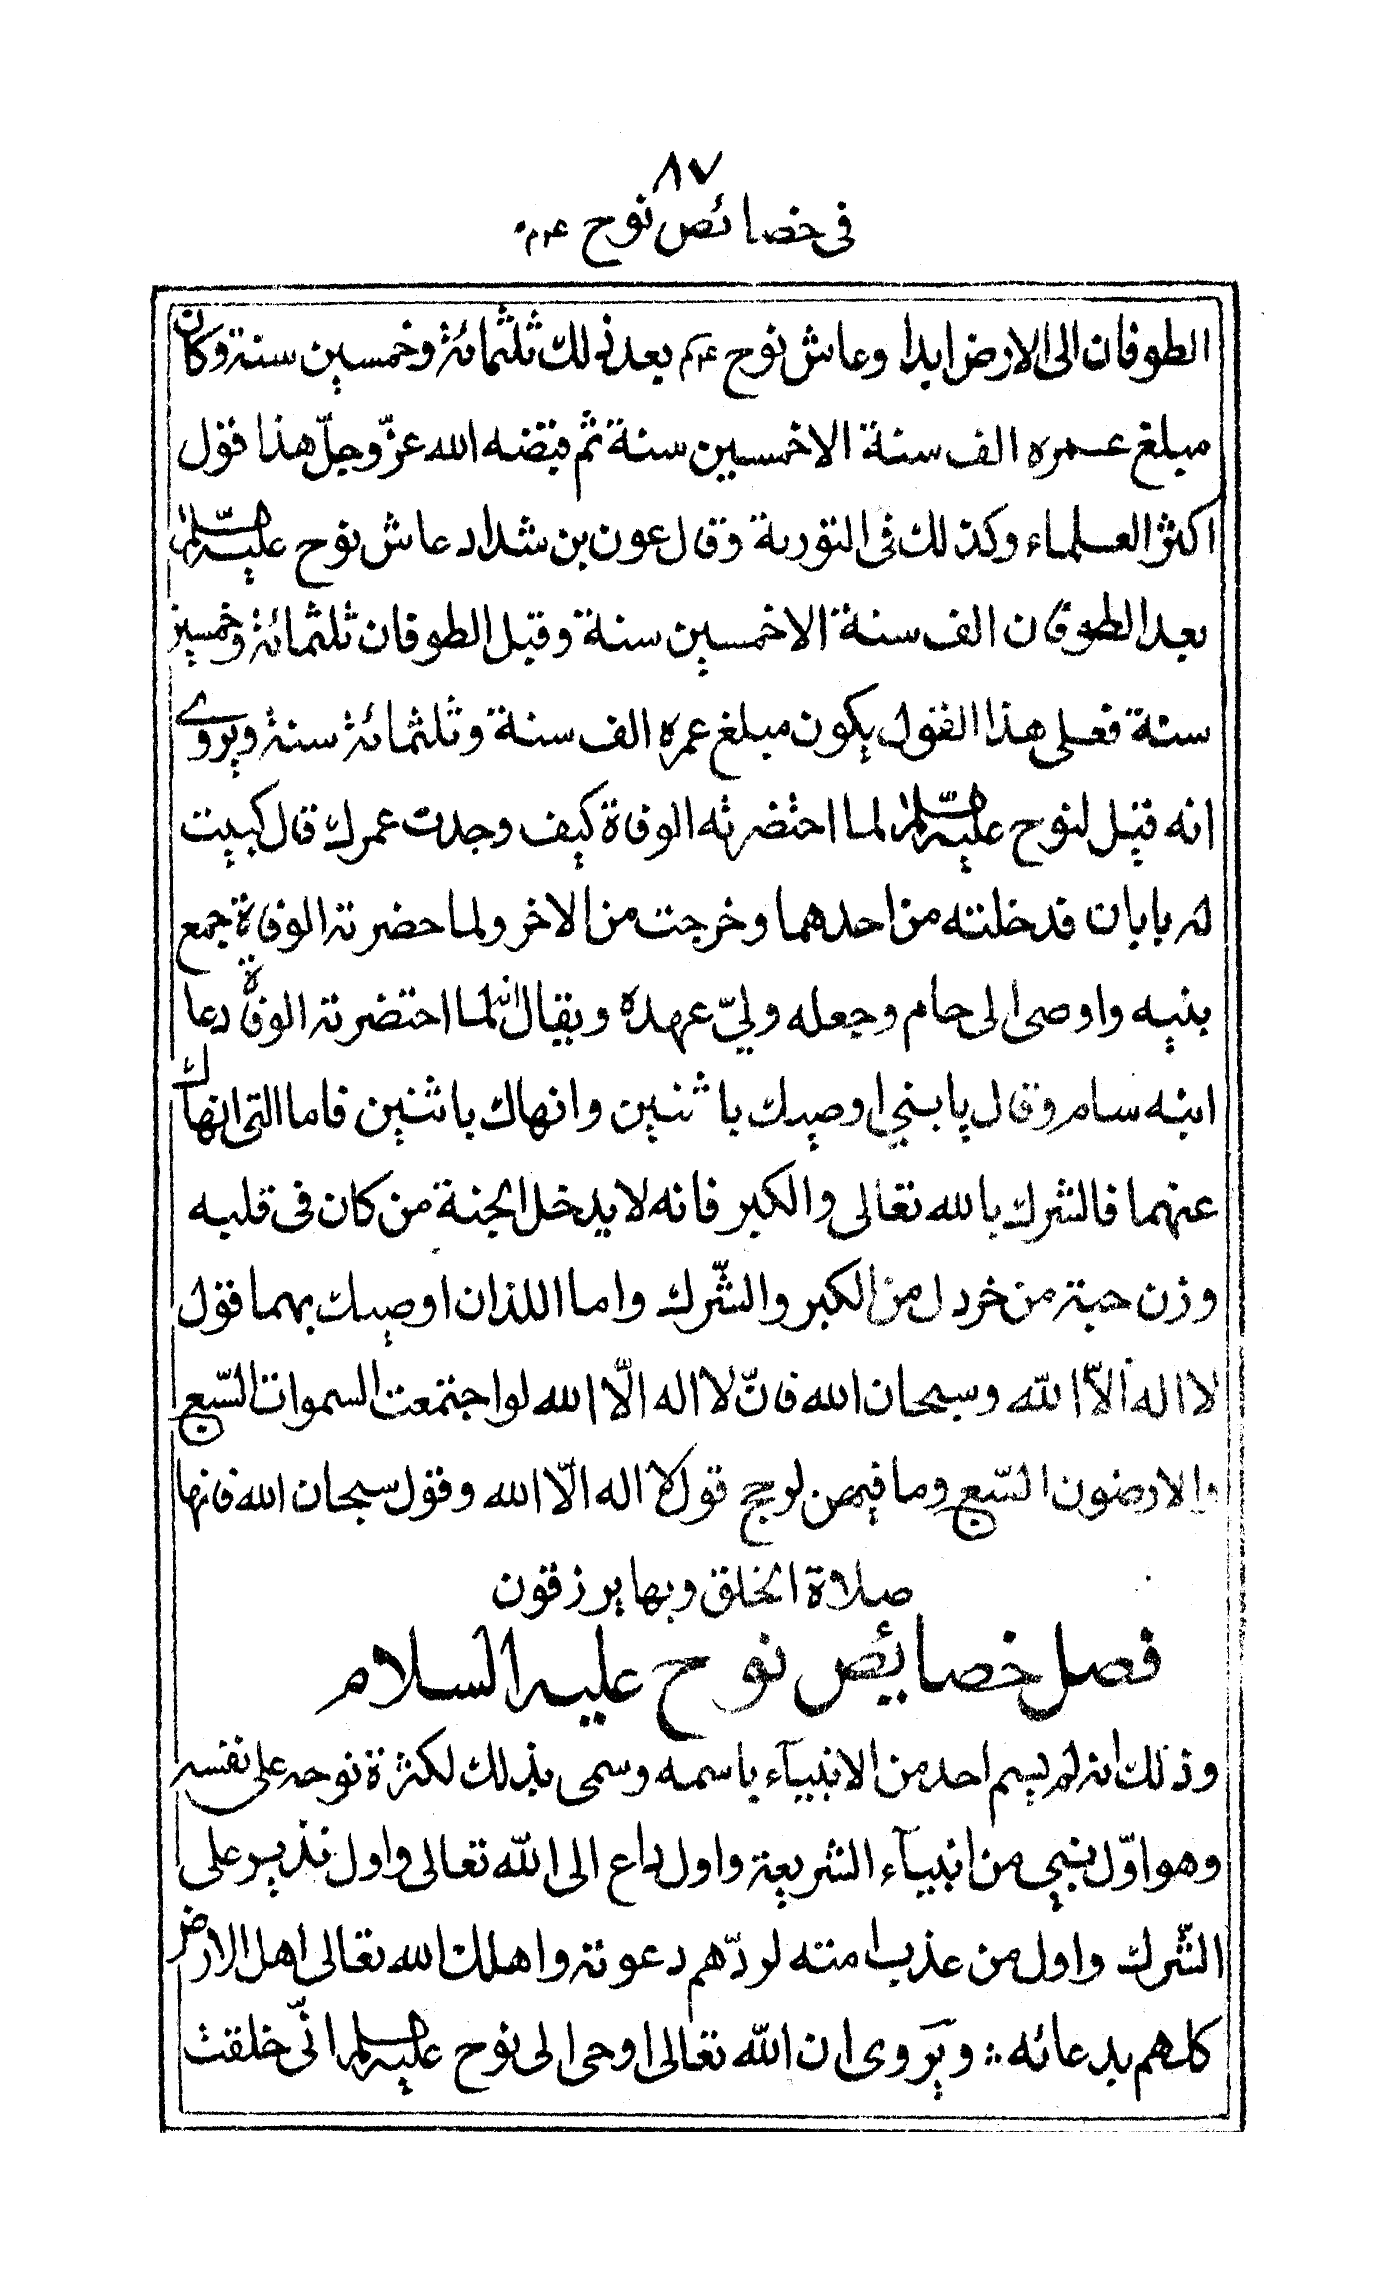 ٨٧
فى خصائص نوح عم
الطوفان الى الارض ابدا وعاش نوح عم بعد ذلك ثلثمائة وخمسين سنة وكان
مبلغ عمره الف سنة الا خمسين سنة ثم قبضه الله عزّ وجلّ هذا قول
اكثر العلماء وكذلك فى التورية وقال عون بن شداد عاش نوح عليه السلام
بعد الطوفان الف سنة الا خمسين سنة وقبل الطوفان ثلثمائة وخمسين
سنة فعلى هذا القول يكون مبلغ عمره الف سنة وثلثمائة سنة ويروى
انه قيل لنوح عليه السّلام لما احتضرته الوفاة كيف وجدت عمرك قال كبيت
له بابان قد خلته من احدهما وخرجت من الاخر ولما حضرته الوفاة جمع
بنيه واوصى الى حام وجعله وليّ عهده ويقال انّه لما احتضرته الوفاة دعا
ابنه سام وقال يا بني اوصيك باثنين وانهاك باثنين فاما التى انهاك
عنهما فالشرك بالله تعالى والكبر فانه لا يدخل الجنة من كان فى قلبه
وزن حبة من خردل من الكبر والشّرك واما اللذان اوصيك بهما فقول
لا اله الاّ الله وسبحان الله فانّ لا اله الّا الله لو اجتمعت السموات السّبع
والارضون السّبع وما فيهن لرجح قول لا اله الّا الله وقول سبحان الله فانها
صلاة الخلق وبها يرزقون
فصل خصائص نوح عليه السلام
وذلك انه لم يسم احد من الانبيآء باسمه وسمى بذلك لكثرة نوحه على نفسه
وهو اوّل نبي من انبيآء الشريعة واول داع الى الله تعالى واول نذير على
الشّرك واول من عذب امته لردّهم دعوته واهلك الله تعالى اهل الارض
كلهم بدعائه ؞ ويروى ان الله تعالى اوحى الى نوح عليه السلام انّى خلقت